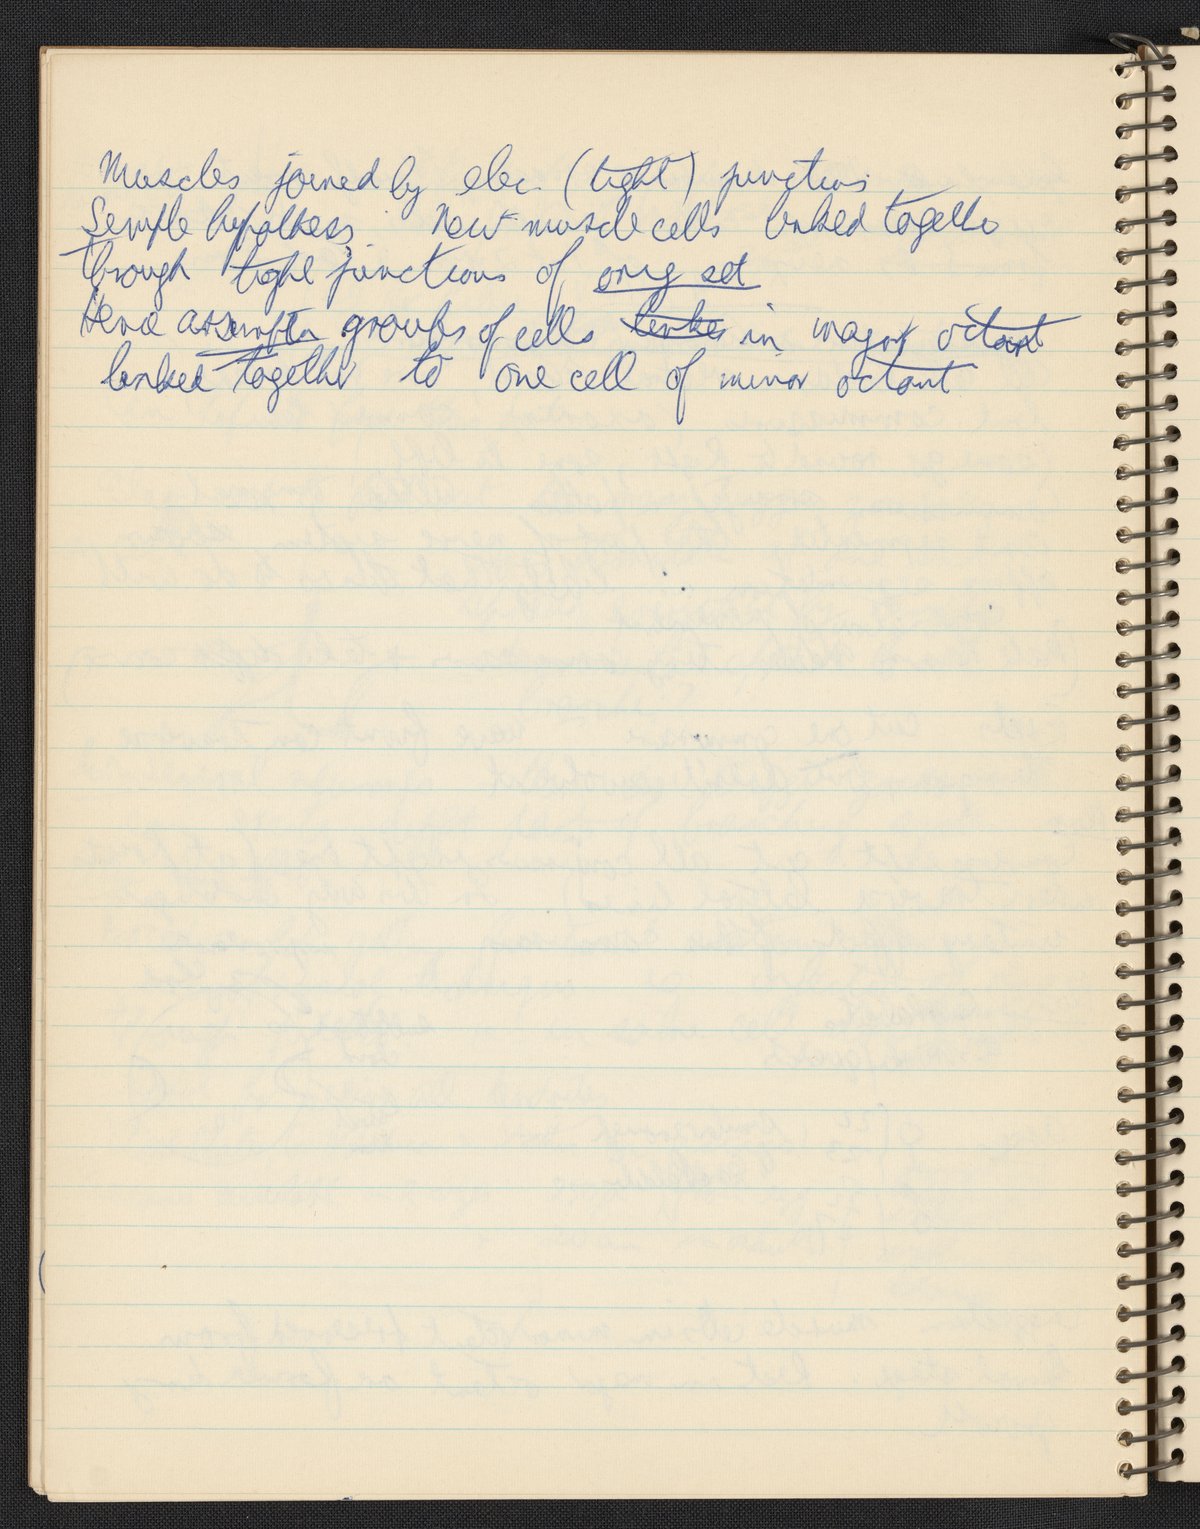 Muscles joined by elec. (tight) junctions
Simple hypothesis. New muscle cells linked together
through tight junctions of orig set
Hence assumption groups of cells linked in major octant
linked together to one cell of minor octant